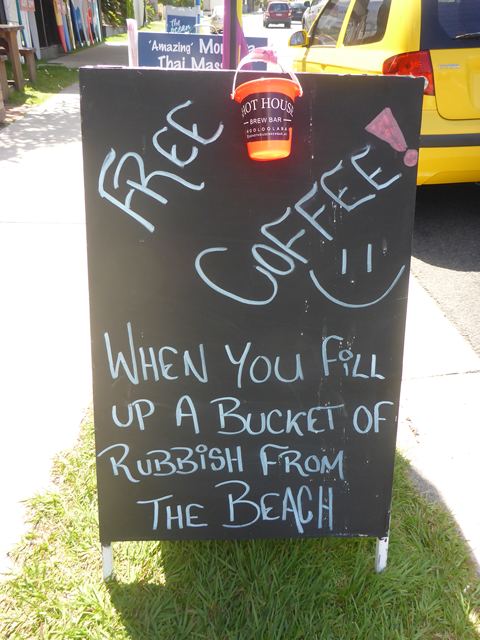 'Amazing'
Thai Mass
HOT HOUSE
BREW BAR
FREE
COFFEE!
WHEN YOU FiLL
UP A BUCKET OF
RUBBiSH FROM
THE BEACH